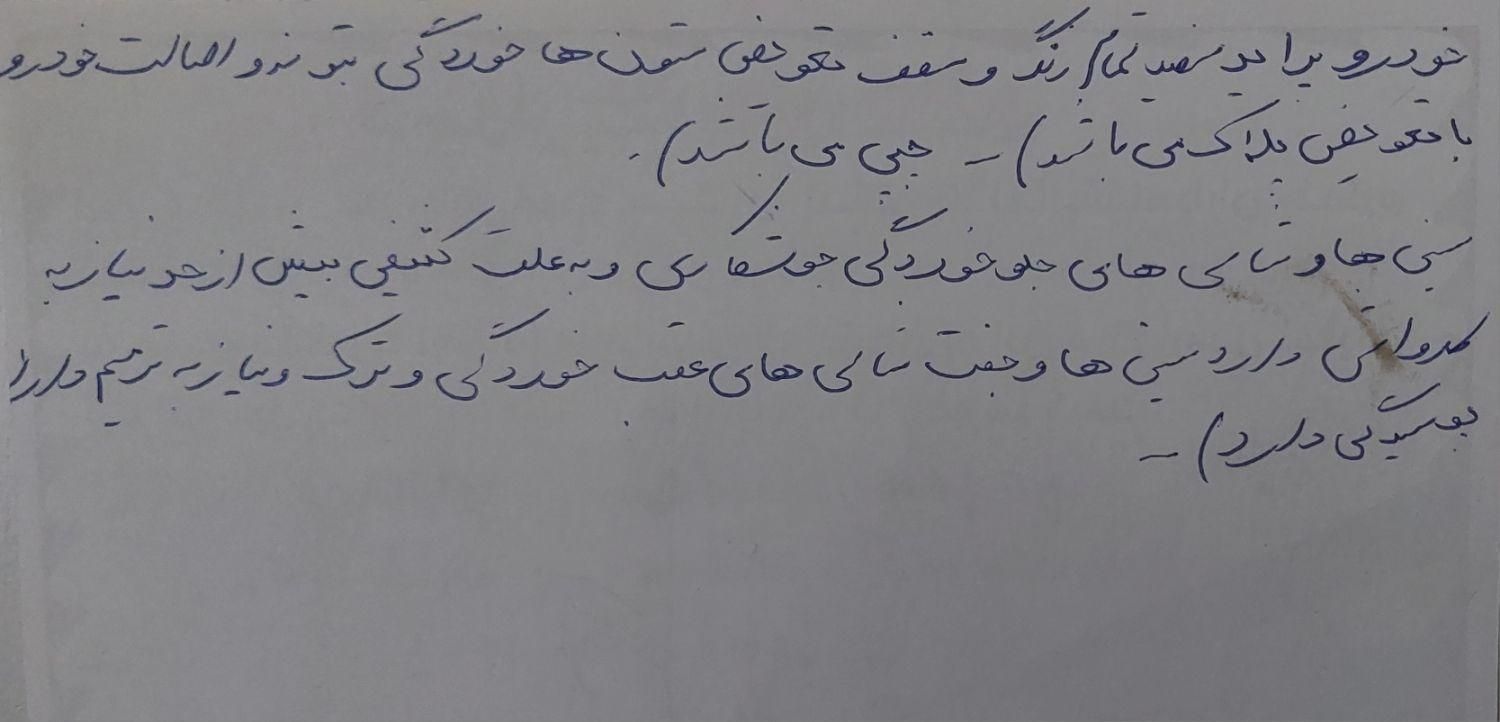 خودرو پراید سفید تمام رنگ و سقف تعویض ستون ها خوردگی بتونه و اصالت خودرو
با تعویض پلاک می باشد) – چپی می باشد).
سینی ها و شاسی های جلو خوردگی جوشکاری و به علت کثیفی بیش از حد نیاز به
دارد سینی ها و جفت شاسی های عقب خوردگی و ترک و نیاز به ترمیم دارد
پوسیدگی دارد) –